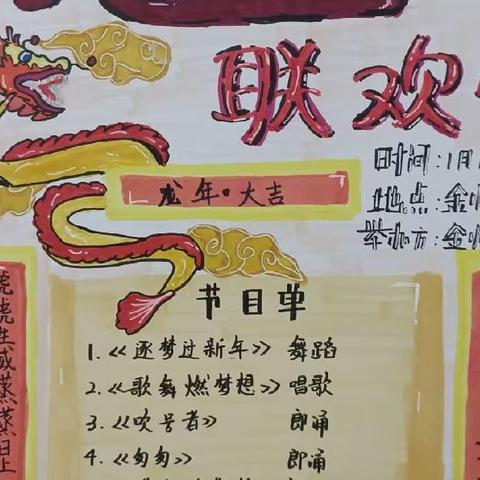 联欢
时间:1月
地点:金
举办方:金
龙年·大吉
节目单
1.《逐梦过新年》 舞蹈
2.《歌舞燃梦想》 唱歌
3.《吹号者》 郎诵
4.《匆匆》 郎诵
虎虎生威蒸蒸日上